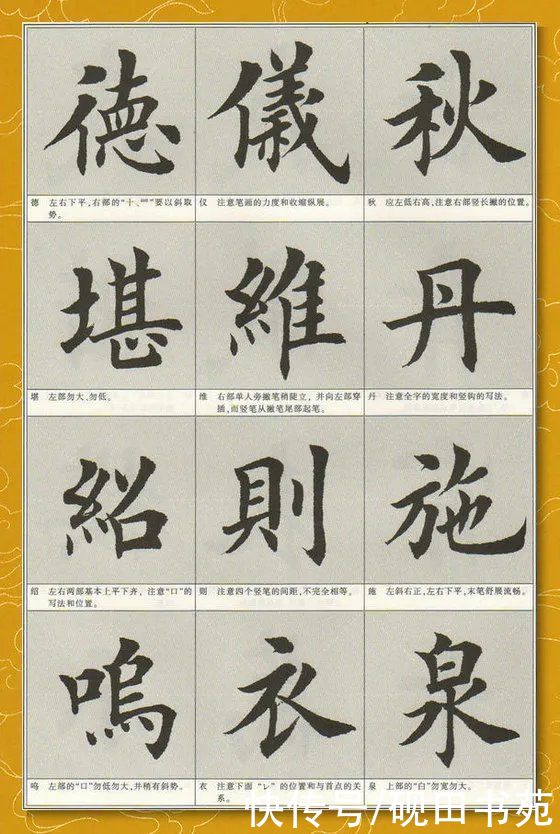 德 儀 秋
德 左右下平，右部的“十、罒”要以斜取
势。
仪 注意笔画的力度和收缩纵展。
秋 应左低右高，注意右部竖长撇的位置。
堪 維 丹
堪 左部勿大、勿低。
维 右部单人旁撇笔稍陡立，并向左部穿
插，而竖笔从撇笔尾部起笔。
丹 注意全字的宽度和竖钩的写法。
紹 則 施
绍 左右两部基本上平下齐，注意“口”的
写法和位置。
则 注意四个竖笔的间距，不完全相等。
施 左斜右正，左右下平，末笔舒展流畅。
嗚 衣 泉
呜 左部的“口”勿低勿大，并稍有斜势。
衣 注意下面“レ”的位置和与首点的关
系。
泉 上部的“白”勿宽勿大。
快传号/砚田书苑